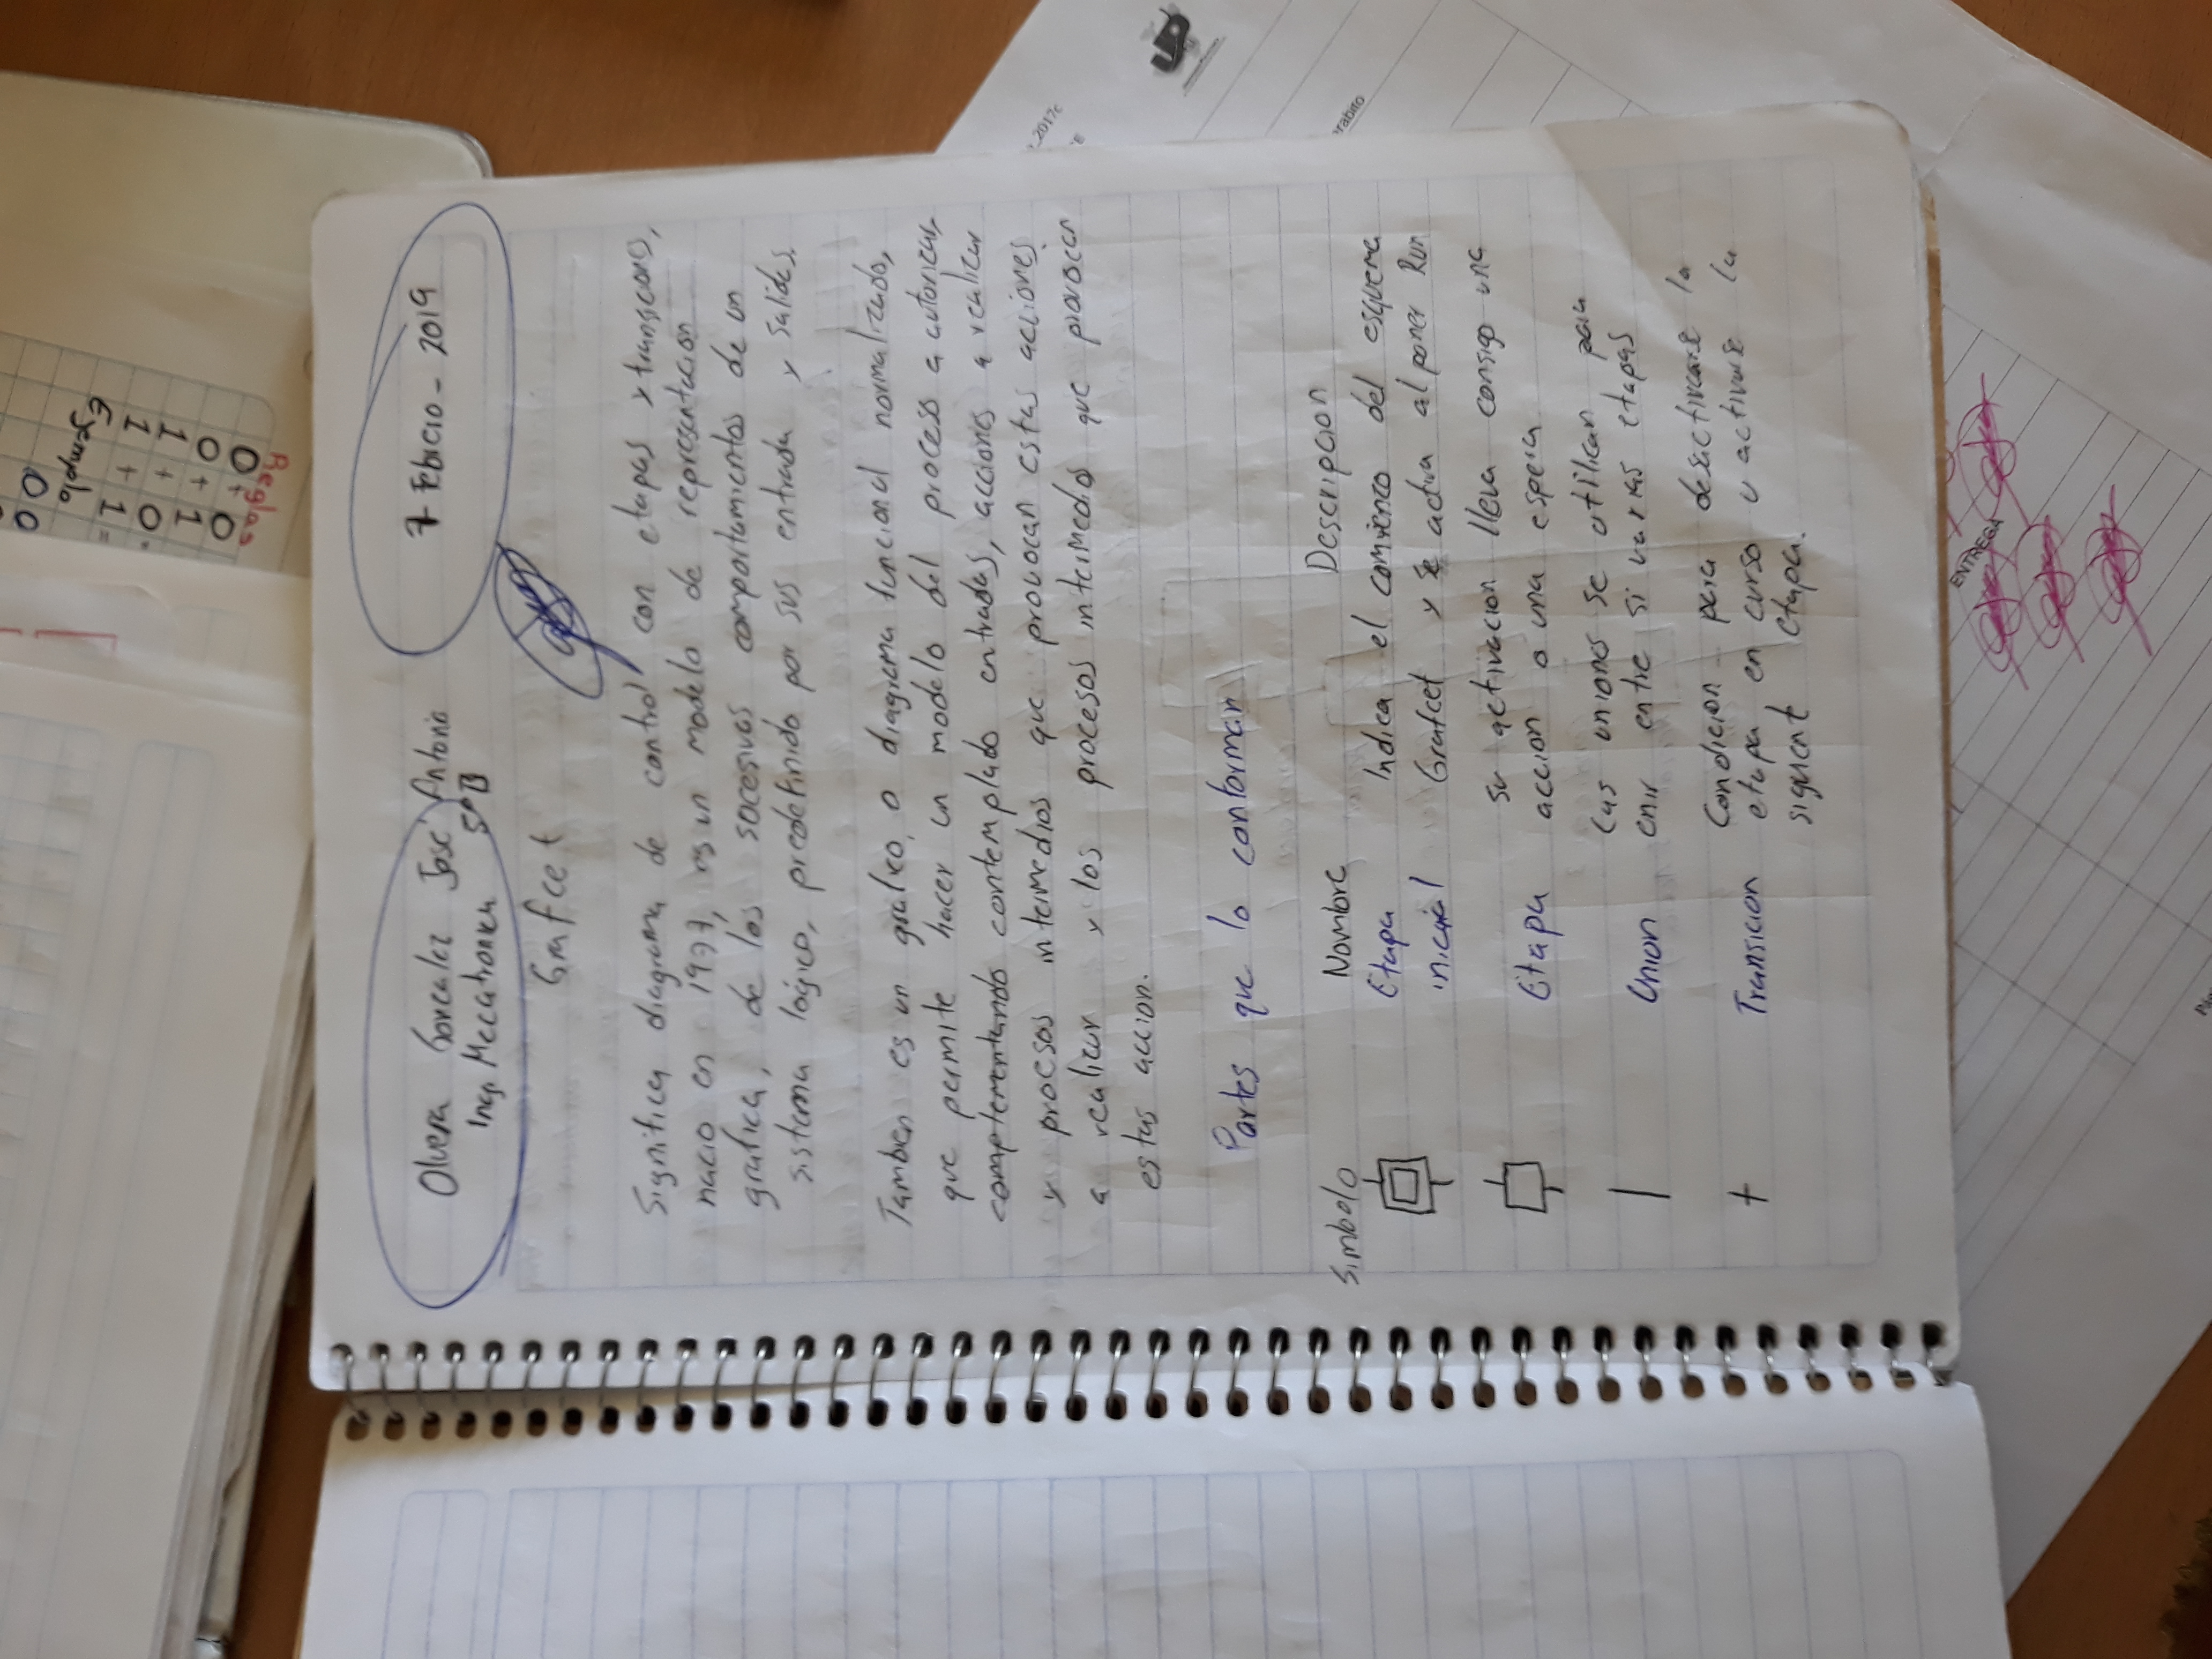 0 0
Ejemplo
1 + 1 =
1 + 0 =
0 + 1
0 + 0
Reglas
Olvera Gonzalez José Antonio
7 Febrero - 2019
Ing. Mecatronica 5° B
Grafcet
Significa diagrama de control con etapas y transiciones,
nacio en 1977, es un modelo de representacion
grafica, de los socesivos comportamientos de un
sistema lógico, predefinido por sus entrada y salidas.
Tambien es un grafico, o diagrama funcional normalizado,
que permite hacer un modelo del proceso a autorizar,
complementando contemplado entradas, acciones a realizar
y procsos intermedios que provocan estas acciones
a realizar y los procesos intermedios que provocan
estas accion.
Partes que lo conforman
Simbolo Nombre Descripcion
Etapa Indica el comienzo del esquema
inicial Grafcet y se activa al poner Run
su activacion lleva consigo una
Etapa accion o una espera
Las uniones se utilizan para
Union unir entre si varias etapas
Condicion para desactivarse la
Transicion etapa en curso y activarse la
siguient etapa.
2017c
ENTREGA